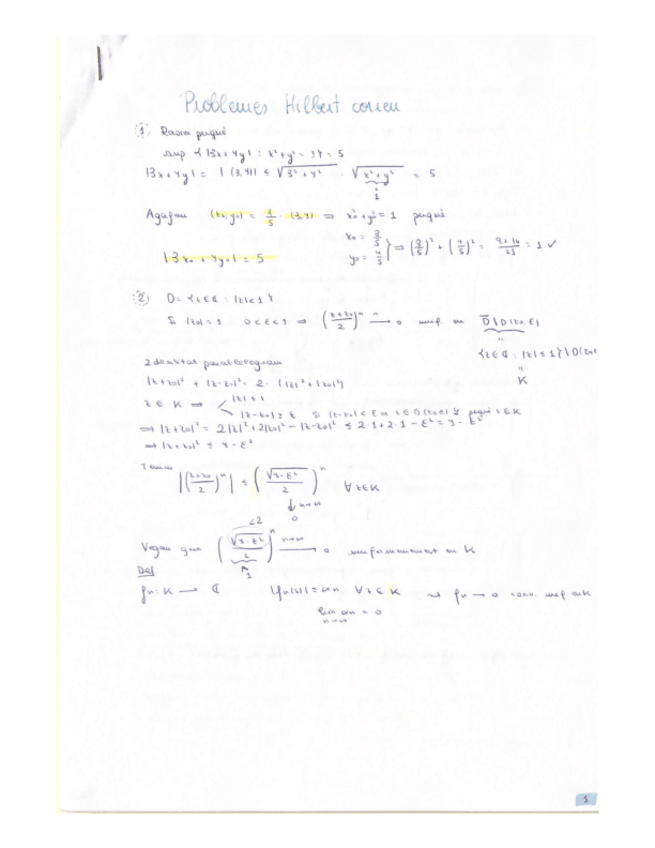 Problemes Hilbert
1) Raona perquè
sup { |3x + 4y| : x² + y² = 1 } = 5
|3x + 4y| = | (3,4) | ≤ √(3² + 4²) · √(x² + y²) = 5
1
Agafem (x₀, y₀) = 1/5 · (3,4) ⇒ x₀² + y₀² = 1 perquè
x₀ = 3/5
y₀ = 4/5 } ⇒ (3/5)² + (4/5)² = (9+16)/25 = 1 ✓
|3x₀ + 4y₀| = 5
2) D = { z ∈ ℂ : |z| < 1 }
Si |z₀| = 1 0 < ε < 1 ⇒ ((z+z₀)/2)ⁿ → 0 unif. en D̄ \ D(z₀, ε)
{z ∈ ℂ : |z| ≤ 1} \ D(z₀ε
K
Identitat paral·lelogram
|z+z₀|² + |z-z₀|² = 2 · (|z|² + |z₀|²)
z ∈ K ⇒ |z| ≤ 1
|z-z₀| ≥ ε Si |z-z₀| < ε ⇒ z ∈ D(z₀,ε) perquè z ∈ K
⇒ |z+z₀|² = 2|z|² + 2|z₀|² - |z-z₀|² ≤ 2·1 + 2·1 - ε² = 4 - ε²
⇒ |z+z₀|² ≤ 4 - ε²
Tenim |((z+z₀)/2)ⁿ| ≤ (√(4-ε²)/2)ⁿ ∀z∈K
↓ n→∞
0
<2
Vegem que (√(4-ε²)/2)ⁿ →(n→∞) 0 uniformement en K
1
Def
fₙ: K → ℂ |fₙ(z)| = αₙ ∀z ∈ K ⇒ fₙ → 0 conv. unif en K
lim αₙ = 0
n→∞
1